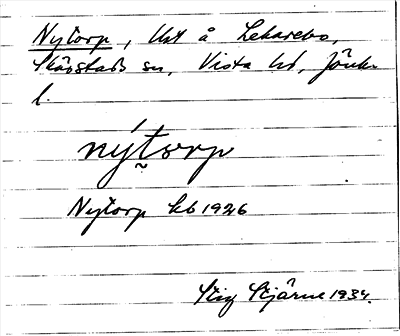 Nytorp, Ust å Lekarebo,
Skärstads sn, Vista hd, Jönk.
l.
nýtorp
Nytorp kb 1926
Stig Stjärne 1934.